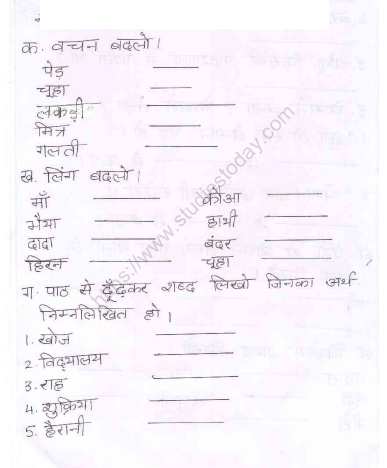 क. वचन बदलो।
पेड़
चूहा
लकड़ी
मित्र
गलती
ख. लिंग बदलो।
माँ कौआ
भैया हाथी
दादा बंदर
हिरन चूहा
ग. पाठ से ढूँढ़कर शब्द लिखो जिनका अर्थ
निम्नलिखित हो।
1. खोज
2. विद्यालय
3. राह
4. शुक्रिया
5. हैरानी
https://www.studiestoday.com